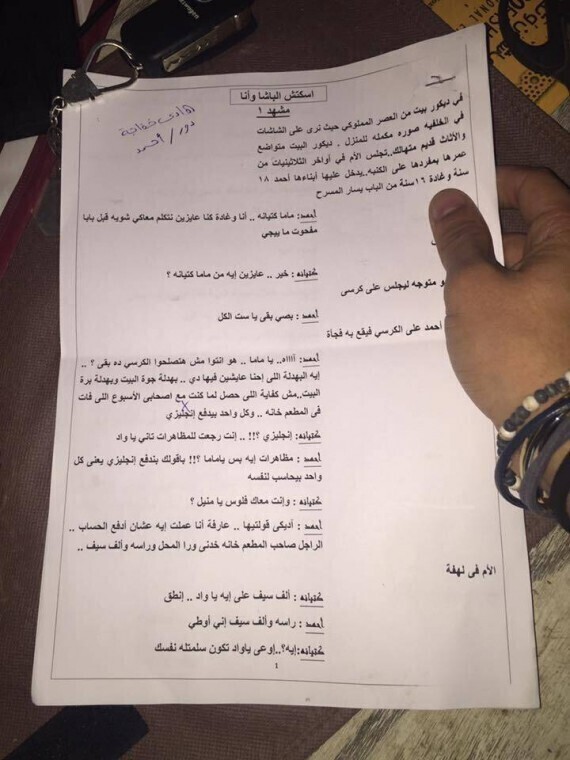 هادى خفاجة
دور / أحمد
اسكتش الباشا وأنا
مشهد ١
في ديكور بيت من العصر المملوكي حيث نرى على الشاشات
في الخلفيه صوره مكمله للمنزل . ديكور البيت متواضع
والأثاث قديم متهالك..تجلس الأم في أواخر الثلاثينيات من
عمرها بمفردها على الكنبه..يدخل عليها أبناءها أحمد ١٨
سنة وغادة ١٦سنة من الباب يسار المسرح
أحمد: ماما كتيانه .. أنا وغادة كنا عايزين نتكلم معاكي شويه قبل بابا
مفحوت ما ييجي
كتيانه : خير .. عايزين إيه من ماما كتيانه ؟
و متوجه ليجلس على كرسى
أحمد : بصي بقى يا ست الكل
أحمد على الكرسي فيقع به فجأة
أحمد: آآآآه.. يا ماما .. هو انتوا مش هتصلحوا الكرسي ده بقى ؟ ..
إيه البهدلة اللى إحنا عايشين فيها دي .. بهدلة جوة البيت وبهدلة برة
البيت..مش كفاية اللى حصل لما كنت مع اصحابى الأسبوع اللى فات
فى المطعم خانه .. وكل واحد بيدفع إنجليزي
كتيانه: إنجليزي ؟!! .. إنت رجعت للمظاهرات تاني يا واد
أحمد : مظاهرات إيه بس ياماما ؟!! باقولك بندفع إنجليزي يعنى كل
واحد بيحاسب لنفسه
كتيانه : وإنت معاك فلوس يا منيل ؟
أحمد : أديكى قولتيها .. عارفة أنا عملت إيه عشان أدفع الحساب ..
الراجل صاحب المطعم خانه خدنى ورا المحل وراسه وألف سيف ..
الأم فى لهفة
كتيانه : ألف سيف على إيه يا واد .. إنطق
أحمد : راسه وألف سيف إني أوطي
كتيانه:إيه؟..إوعى ياواد تكون سلمتله نفسك
١